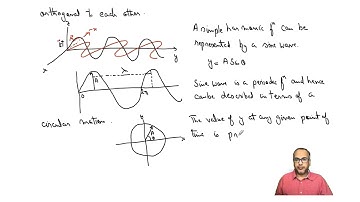 orthogonal to each other.
A simple harmonic fⁿ can be
represented by a sine wave.
y = A Sin θ
Sine wave is a periodic fⁿ and hence
can be described in terms of a
circular motion.
The value of y at any given point of
time is pr
x
y
z
λ
A
0
2π
y
A
θ